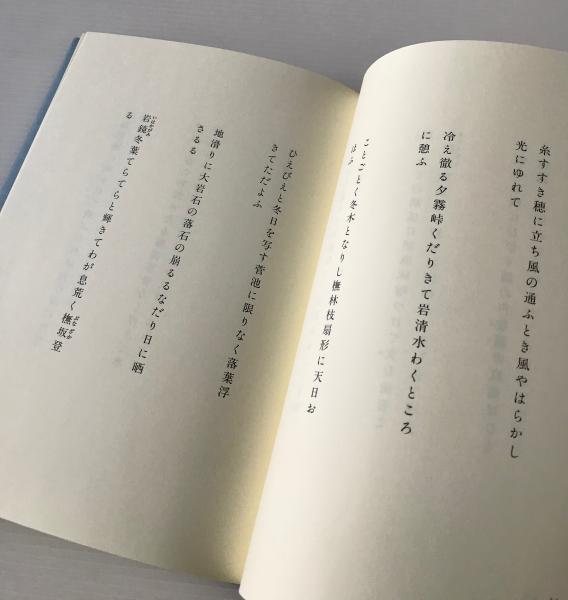 糸すすき穂に立ち風の通ふとき風やはらかし
光にゆれて
冷え徹る夕霧峠くだりきて岩清水わくところ
に憩ふ
ことごとく冬木となりし橅林枝扇形に天日お
ほふ
ひえびえと冬日を写す菅池に限りなく落葉浮
きてただよふ
地滑りに大岩石の落石の崩るるなだり日に晒
さるる
岩鏡冬葉てらてらと輝きてわが息荒く橅坂登
る